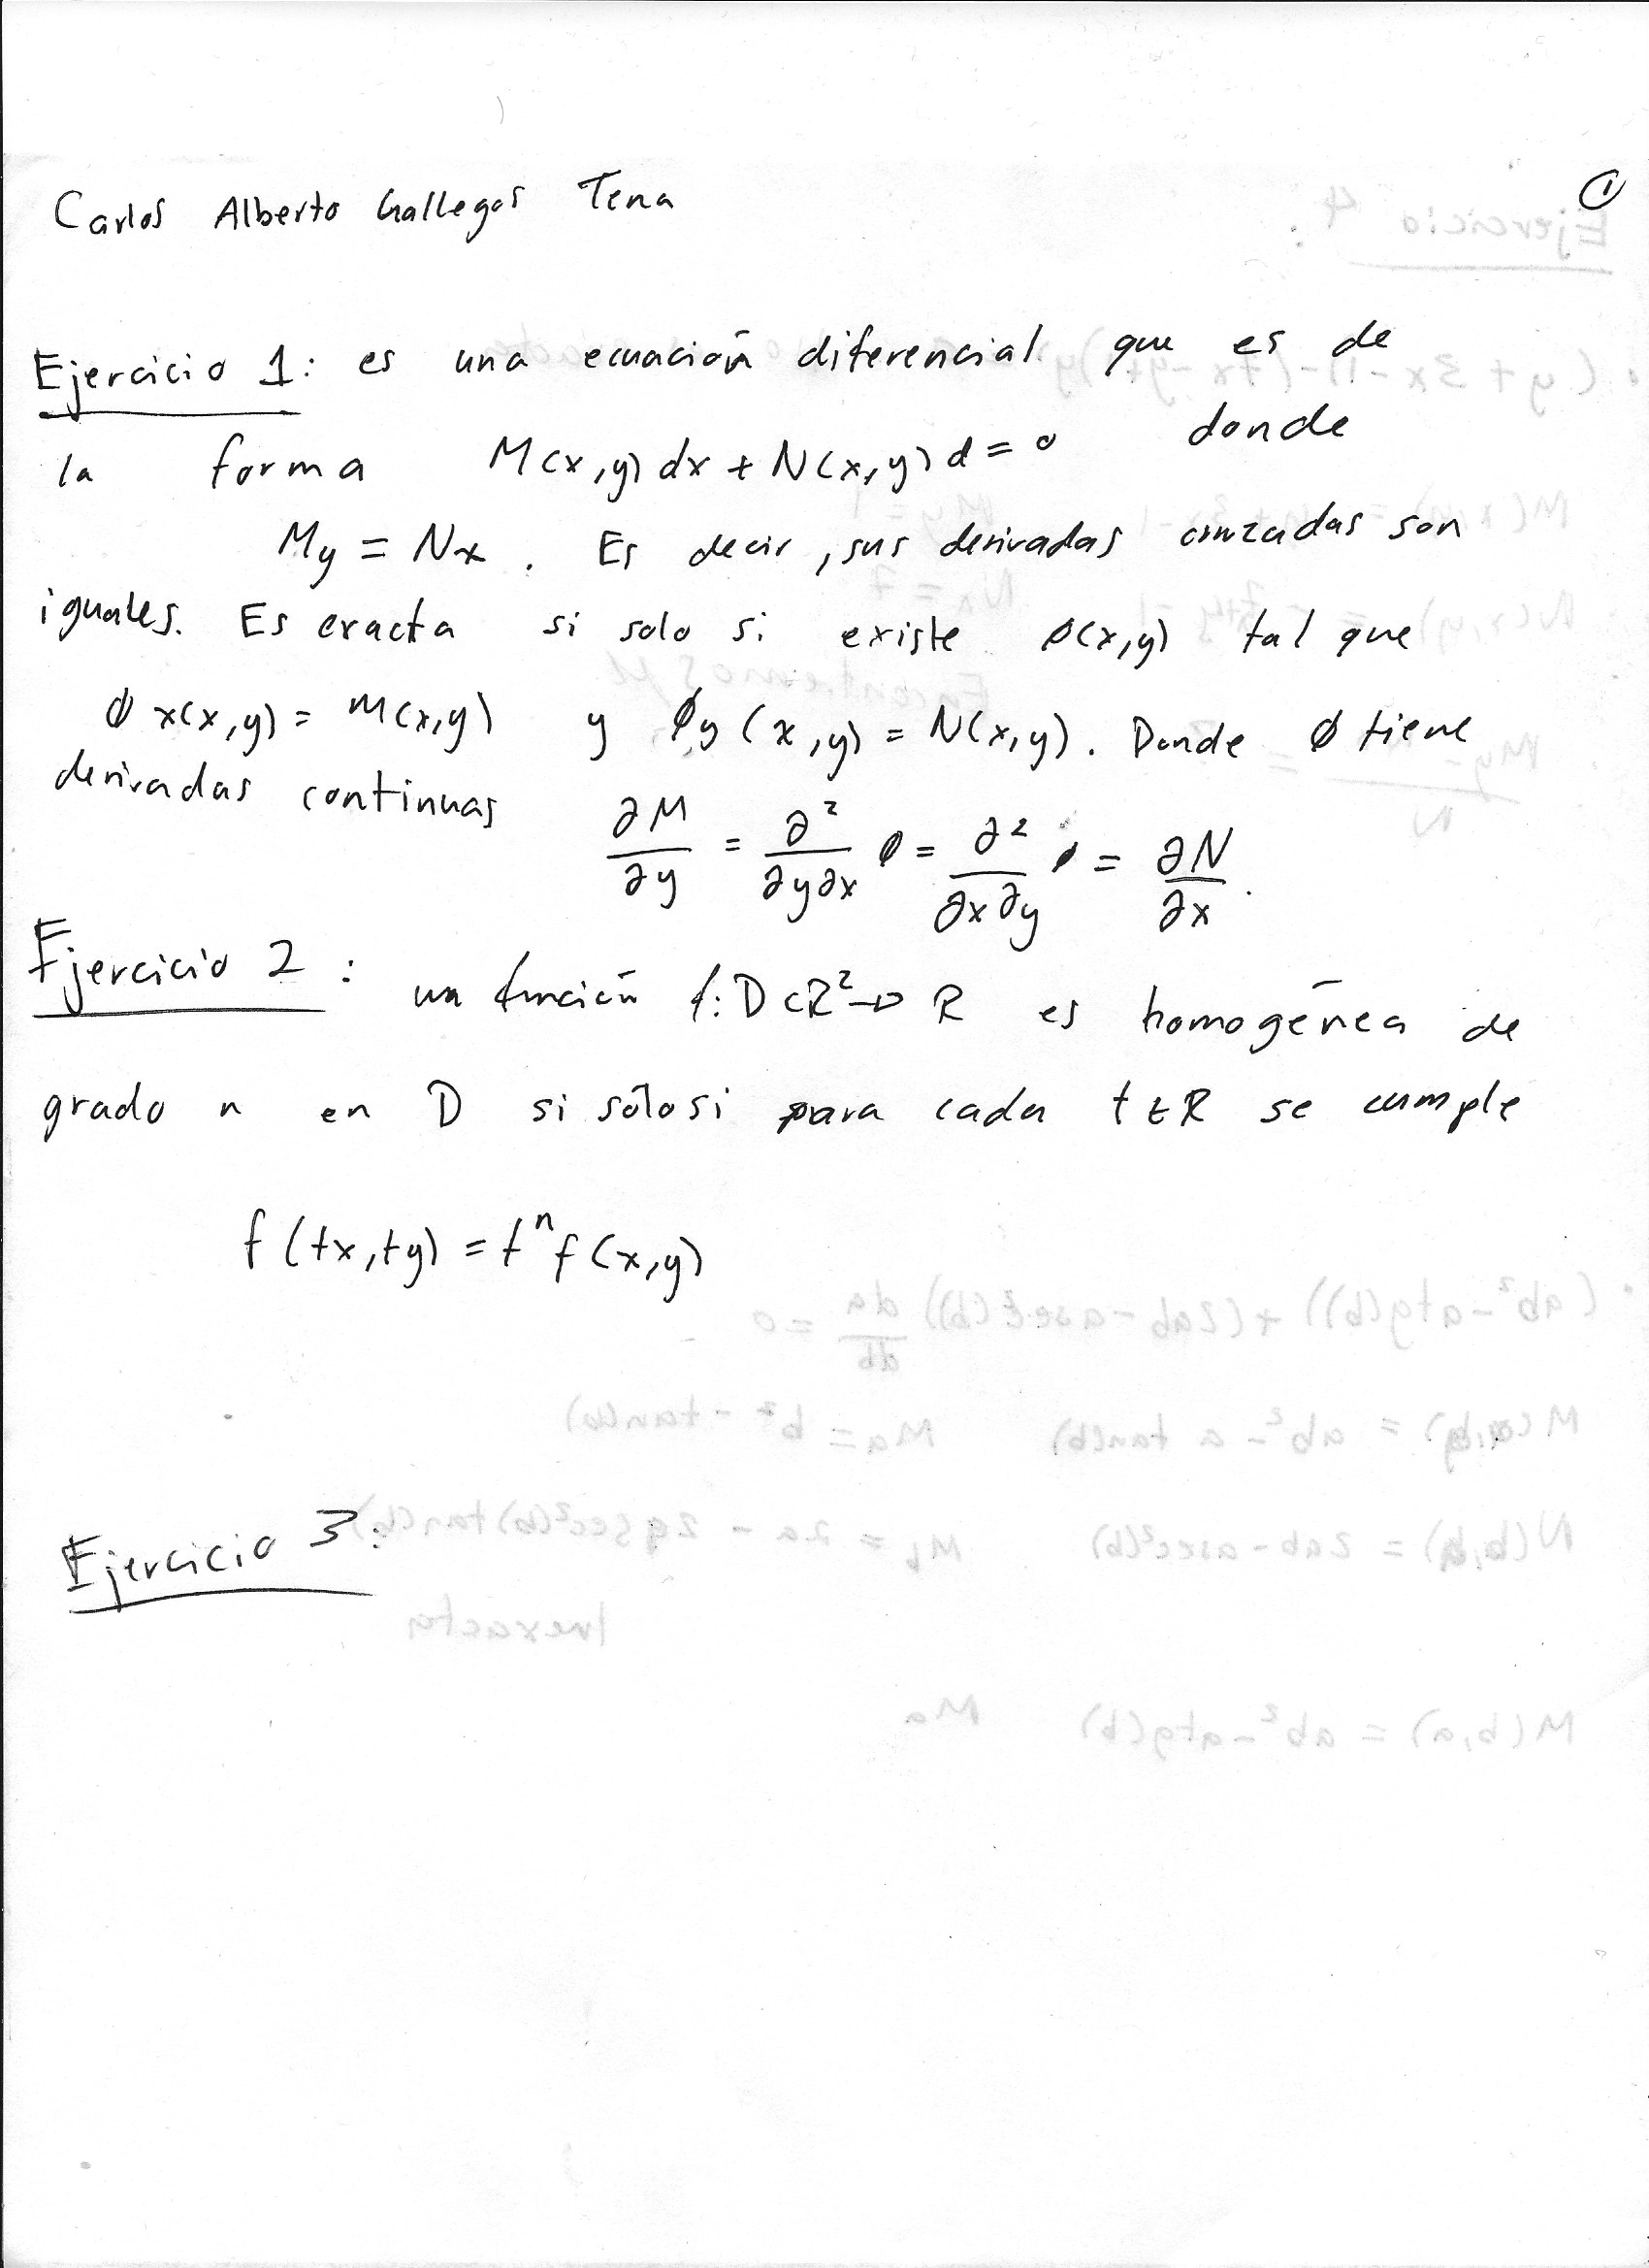 Carlos Alberto Gallegos Tena
①
Ejercicio 1: es una ecuación diferencial que es de
la forma M(x,y)dx + N(x,y)d = 0 donde
My = Nx. Es decir, sus derivadas cruzadas son
iguales. Es exacta si solo si existe ϕ(x,y) tal que
ϕx(x,y) = M(x,y) y ϕy(x,y) = N(x,y). Donde ϕ tiene
derivadas continuas ∂M/∂y = ∂²/∂y∂x ϕ = ∂²/∂x∂y ϕ = ∂N/∂x.
Ejercicio 2: un función f: D⊂R² → R es homogénea de
grado n en D si sólo si para cada t∈R se cumple
f(tx,ty) = tⁿf(x,y)
Ejercicio 3: